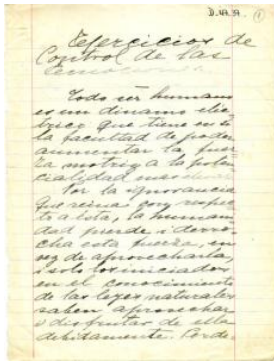 D.47.37. (1)
Ejercicios de
Control de las
Emociones.
Todo ser humano
es un dinamo eléc
trico que tiene en sí
la facultad de poder
aumentar la fuer
za motriz a la poten
cialidad mas
Por la ignorancia
que reina con respec
to a ésta, la humani
dad pierde i derro
cha esta fuerza, en
vez de aprovecharla,
i solo los iniciados
en el conocimiento
de las leyes naturales
saben aprovechar
i disfrutar de ella
debidamente. Por de